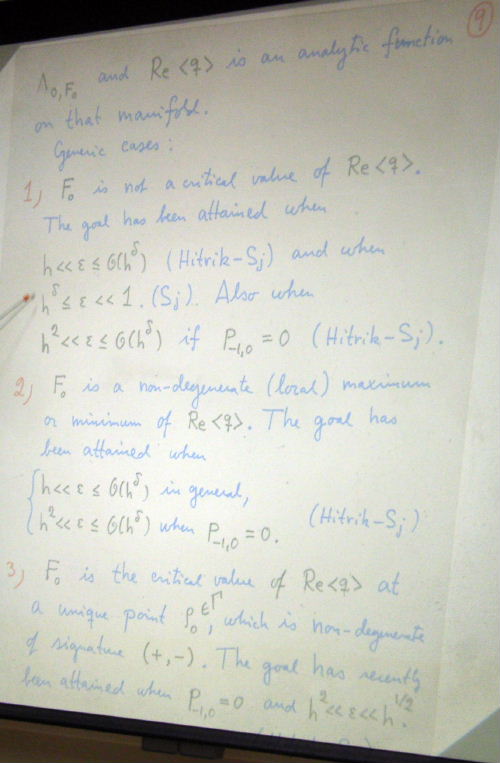 9
Λ₀,F₀ and Re <q> is an analytic function
on that manifold.
Generic cases:
1) F₀ is not a critical value of Re<q>.
The goal has been attained when
h<<ε ≤ O(h^δ) (Hitrik-Sj) and when
h^δ ≤ ε << 1. (Sj). Also when
h²<<ε ≤ O(h^δ) if P₋₁,₀ = 0 (Hitrik-Sj).
2) F₀ is a non-degenerate (local) maximum
or minimum of Re<q>. The goal has
been attained when
{ h<<ε ≤ O(h^δ) in general,
h²<<ε ≤ O(h^δ) when P₋₁,₀ = 0. (Hitrik-Sj)
3) F₀ is the critical value of Re<q> at
a unique point ρ₀∈Γ, which is non-degenerate
of signature (+,-). The goal has recently
been attained when P₋₁,₀ = 0 and h²<<ε<<h^1/2.